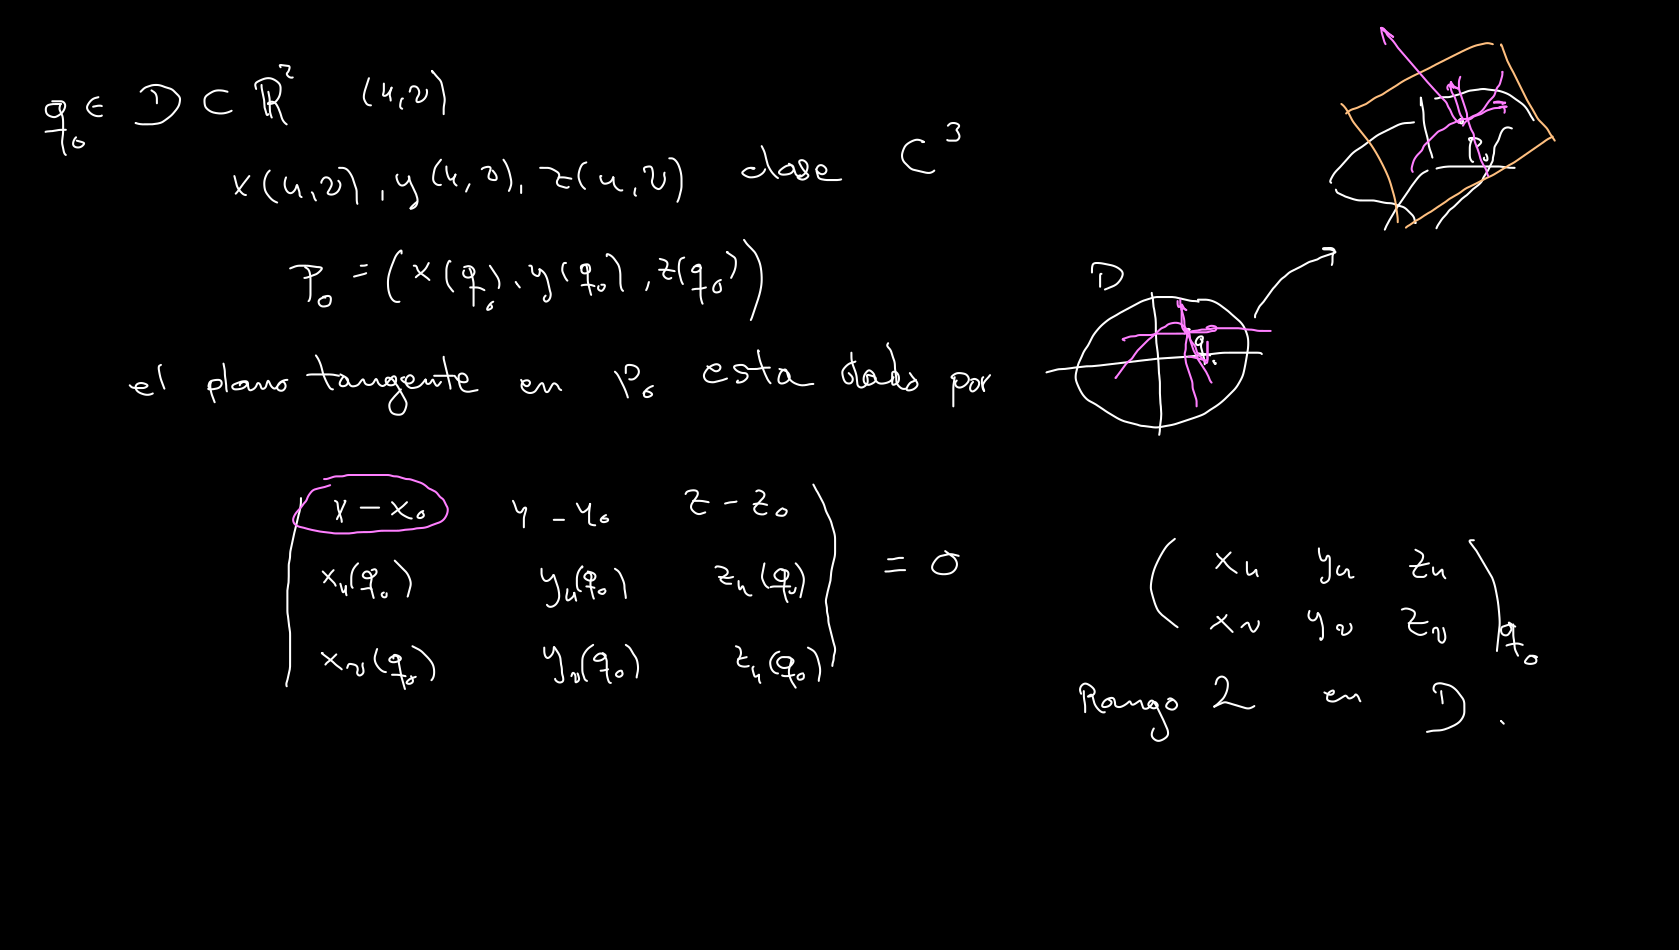 q₀ ∈ D ⊂ ℝ² (u,v)
x(u,v), y(u,v), z(u,v) clase C³
P₀ = (x(q₀), y(q₀), z(q₀))
el plano tangente en P₀ esta dado por
| x - x₀ y - y₀ z - z₀ |
| x_u(q₀) y_u(q₀) z_u(q₀) | = 0
| x_v(q₀) y_v(q₀) z_u(q₀) |
P₀
D
q₀
( x_u y_u z_u )
( x_v y_v z_v ) q₀
Rango 2 en D.